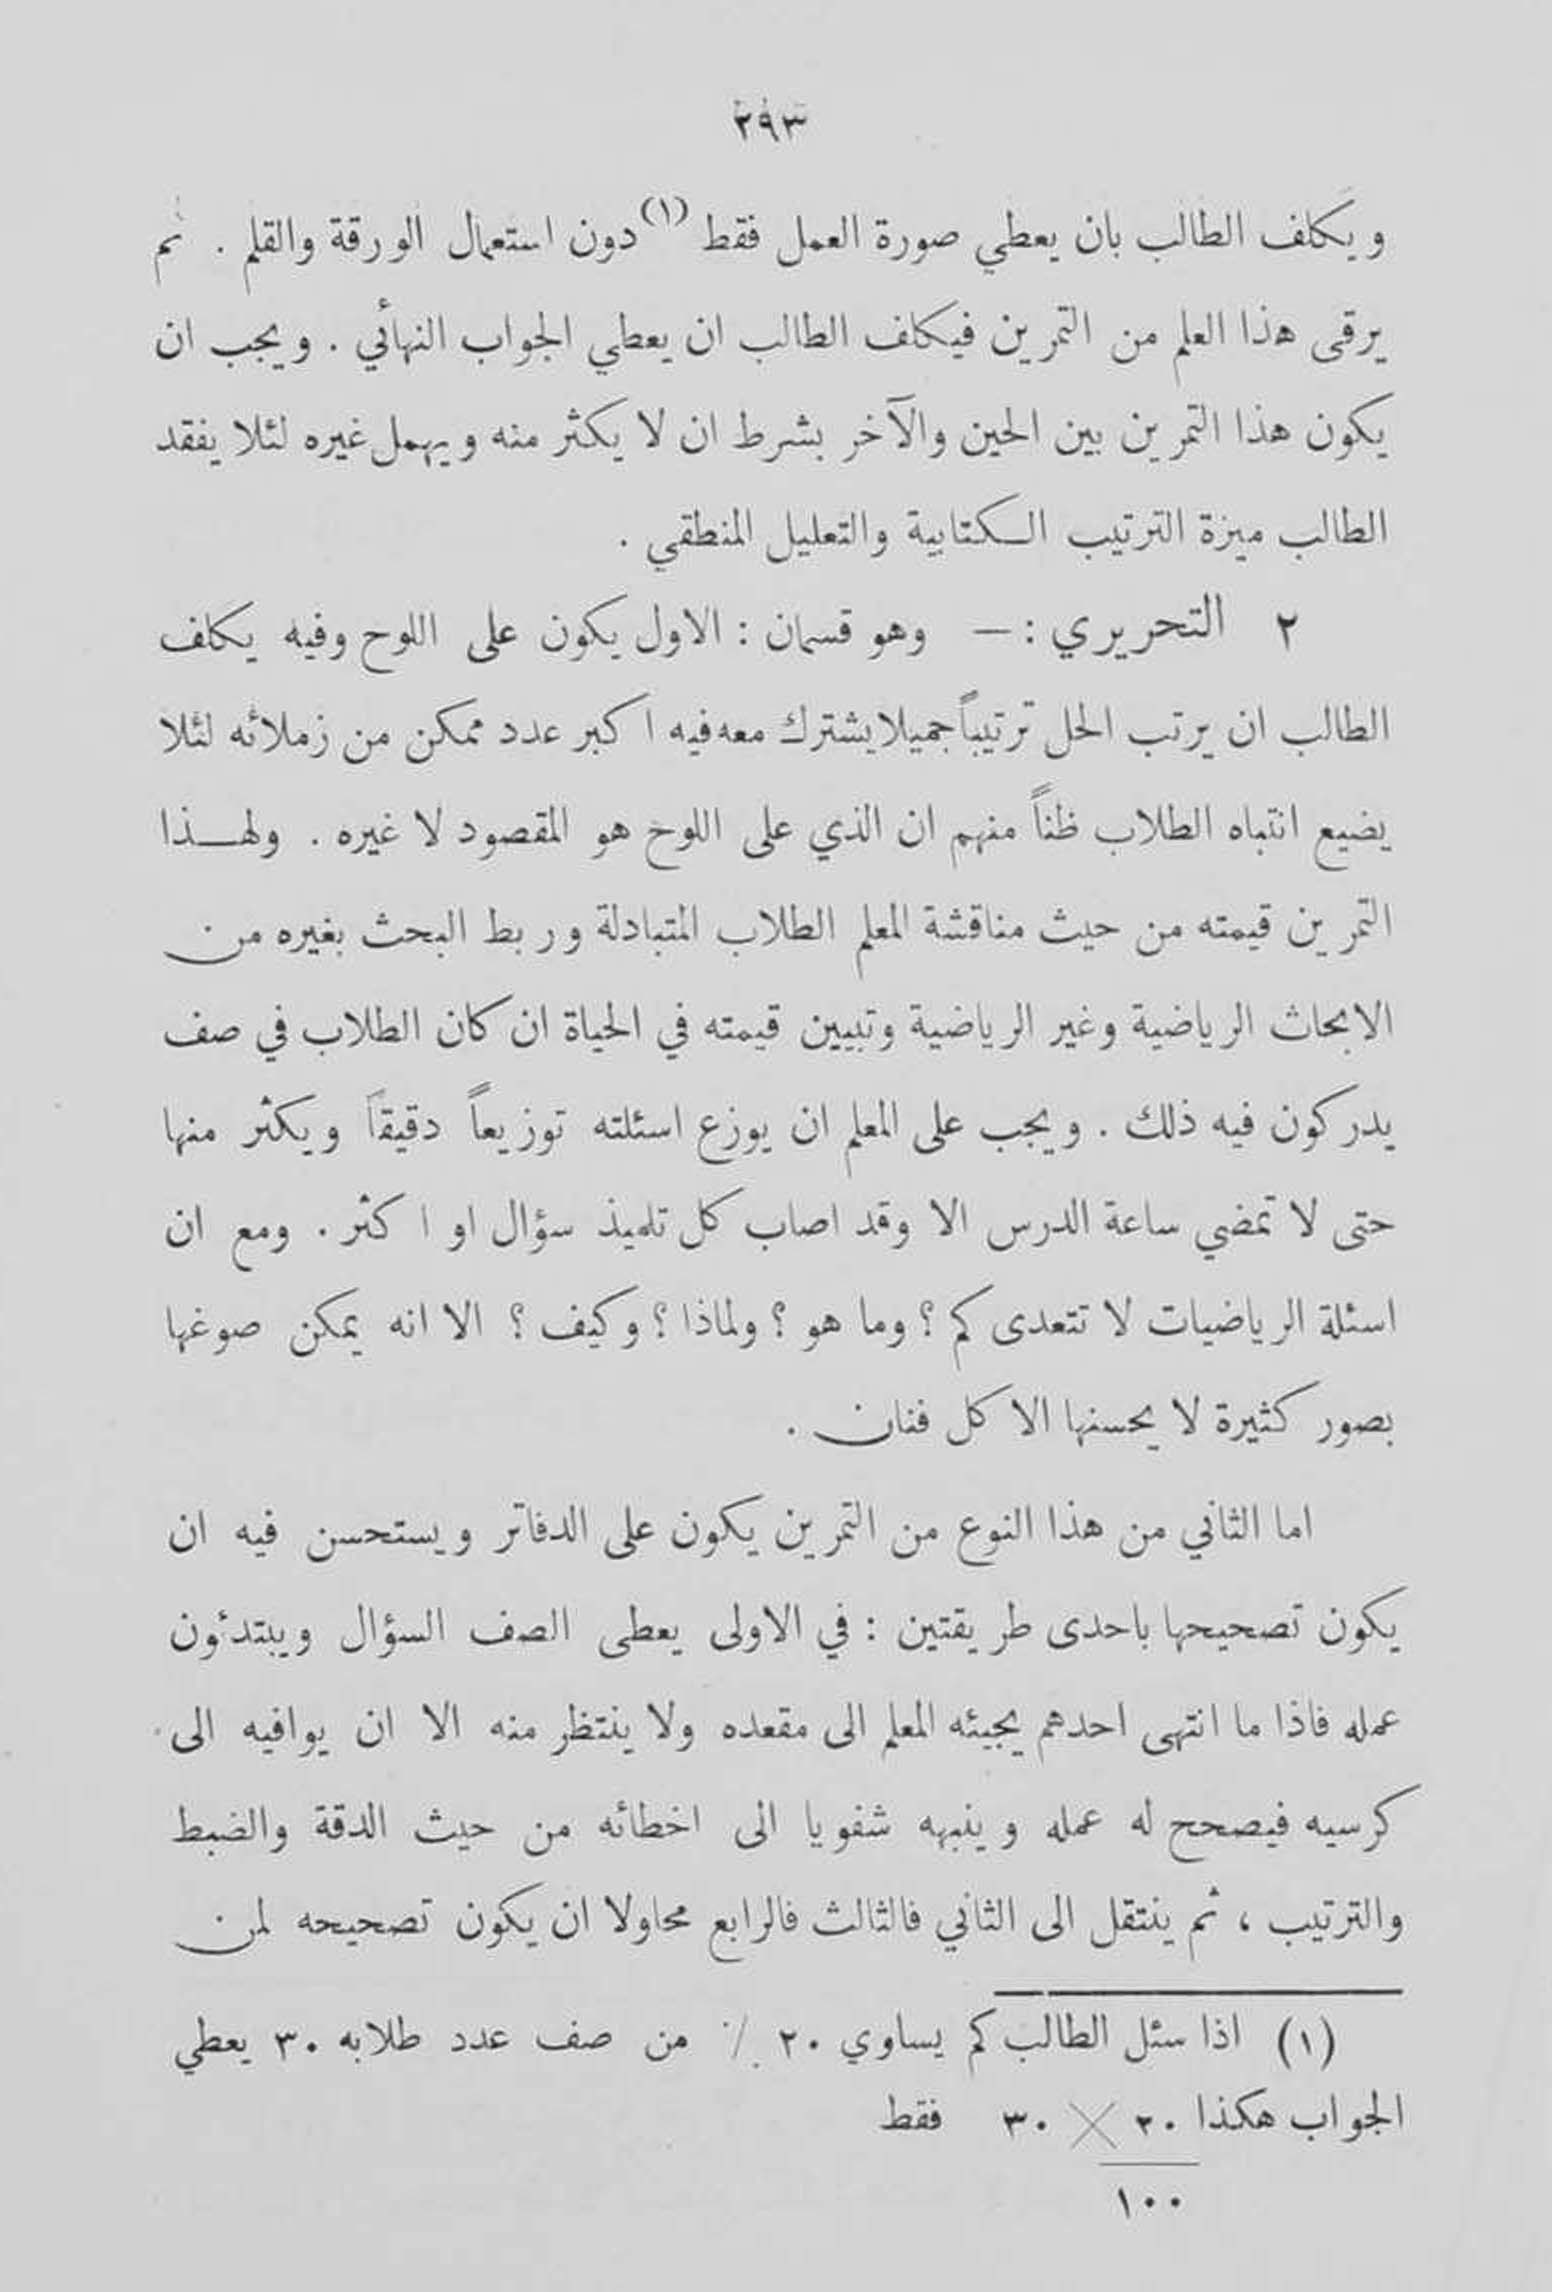 ٢٩٣
ويكلف الطالب بان يعطي صورة العمل فقط (١) دون استعمال الورقة والقلم . ثم
يرقى هذا العلم من التمرين فيكلف الطالب ان يعطي الجواب النهائي . ويجب ان
يكون هذا التمرين بين الحين والآخر بشرط ان لا يكثر منه ويهمل غيره لئلا يفقد
الطالب ميزة الترتيب الكتابية والتعليل المنطقي .
٢ التحريري : — وهو قسمان : الاول يكون على اللوح وفيه يكلف
الطالب ان يرتب الحل ترتيباً جميلا يشترك معه فيه اكبر عدد ممكن من زملائه لئلا
يضيع انتباه الطلاب ظناً منهم ان الذي على اللوح هو المقصود لا غيره . ولهـذا
التمرين قيمته من حيث مناقشة المعلم الطلاب المتبادلة وربط البحث بغيره من
الابحاث الرياضية وغير الرياضية وتبيين قيمته في الحياة ان كان الطلاب في صف
يدركون فيه ذلك . ويجب على المعلم ان يوزع اسئلته توزيعاً دقيقاً ويكثر منها
حتى لا تمضي ساعة الدرس الا وقد اصاب كل تلميذ سؤال او اكثر . ومع ان
اسئلة الرياضيات لا تتعدى كم ؟ وما هو ؟ ولماذا ؟ وكيف ؟ الا انه يمكن صوغها
بصور كثيرة لا يحسنها الا كل فنان .
اما الثاني من هذا النوع من التمرين يكون على الدفاتر ويستحسن فيه ان
يكون تصحيحها باحدى طريقتين : في الاولى يعطى الصف السؤال ويبتدئون
عمله فاذا ما انتهى احدهم يجيئه المعلم الى مقعده ولا ينتظر منه الا ان يوافيه الى
كرسيه فيصحح له عمله وينبهه شفويا الى اخطائه من حيث الدقة والضبط
والترتيب ، ثم ينتقل الى الثاني فالثالث فالرابع محاولا ان يكون تصحيحه لمن
(١) اذا سئل الطالب كم يساوي ٢٠ ٪ من صف عدد طلابه ٣٠ يعطي
الجواب هكذا ٢٠ × ٣٠ فقط
١٠٠